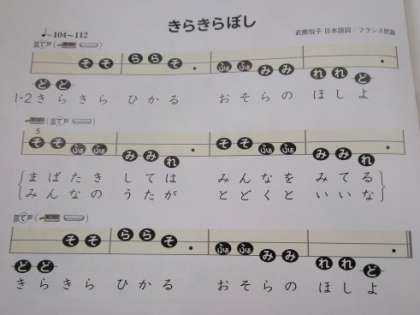 きらきらぼし
♩=104~112
武鹿悦子 日本語詞 / フランス民謡
そ そ ら ら そ ふぁ ふぁ み み れ れ ど
ど ど
1-2 き ら き ら ひ か る お そ ら の ほ し よ
5
そ そ ふぁ ふぁ み み れ そ そ ふぁ ふぁ み み れ
ま ば た き し て は み ん な を み て る
み ん な の う た が と ど く と い い な
そ そ ら ら そ ふぁ ふぁ み み れ れ ど
ど ど
き ら き ら ひ か る お そ ら の ほ し よ